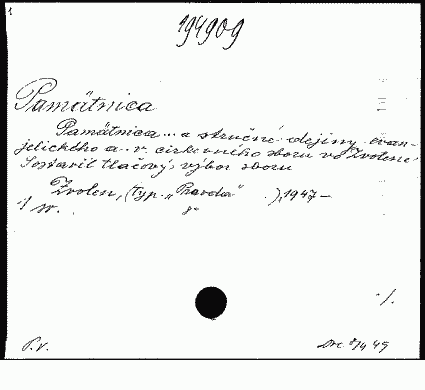 194909
Pamätnica
Pamätnica... a stručné dejiny evan-
jelického a. v. cirkevného sboru vo Zvolene.
Sostavil tlačový výbor sboru
Zvolen, (typ. „Pravda“ ), 1947 –
8°
P. v.